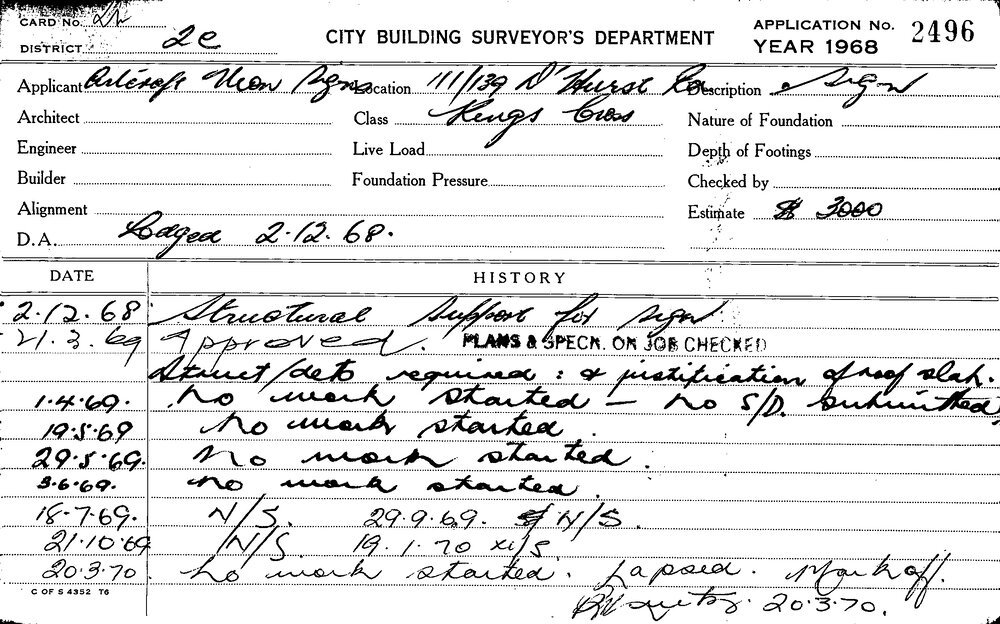 CARD No.
DISTRICT 2C
CITY BUILDING SURVEYOR'S DEPARTMENT
APPLICATION No. 2496
YEAR 1968
Applicant Artcraft Neon Signs Location 111/139 D'Hurst Rd Description Sign
Architect Class Kings Cross Nature of Foundation
Engineer Live Load Depth of Footings
Builder Foundation Pressure Checked by
Alignment Estimate $ 3000
D.A. Lodged 2.12.68.
DATE HISTORY
2.12.68 Structural support for sign
21.3.69 Approved. PLANS & SPECN. ON JOB CHECKED
Struct/dets required : & justification of roof slab.
1.4.69. No work started - No S/D. submitted,
19.5.69 No work started.
29.5.69. No work started.
3.6.69. No work started.
18.7.69. N/S. 29.9.69. N/S.
21.10.69 N/S. 19.1.70 N/S.
20.3.70 No work started. Lapsed. Mark off.
20.3.70.
C OF S 4352 T6